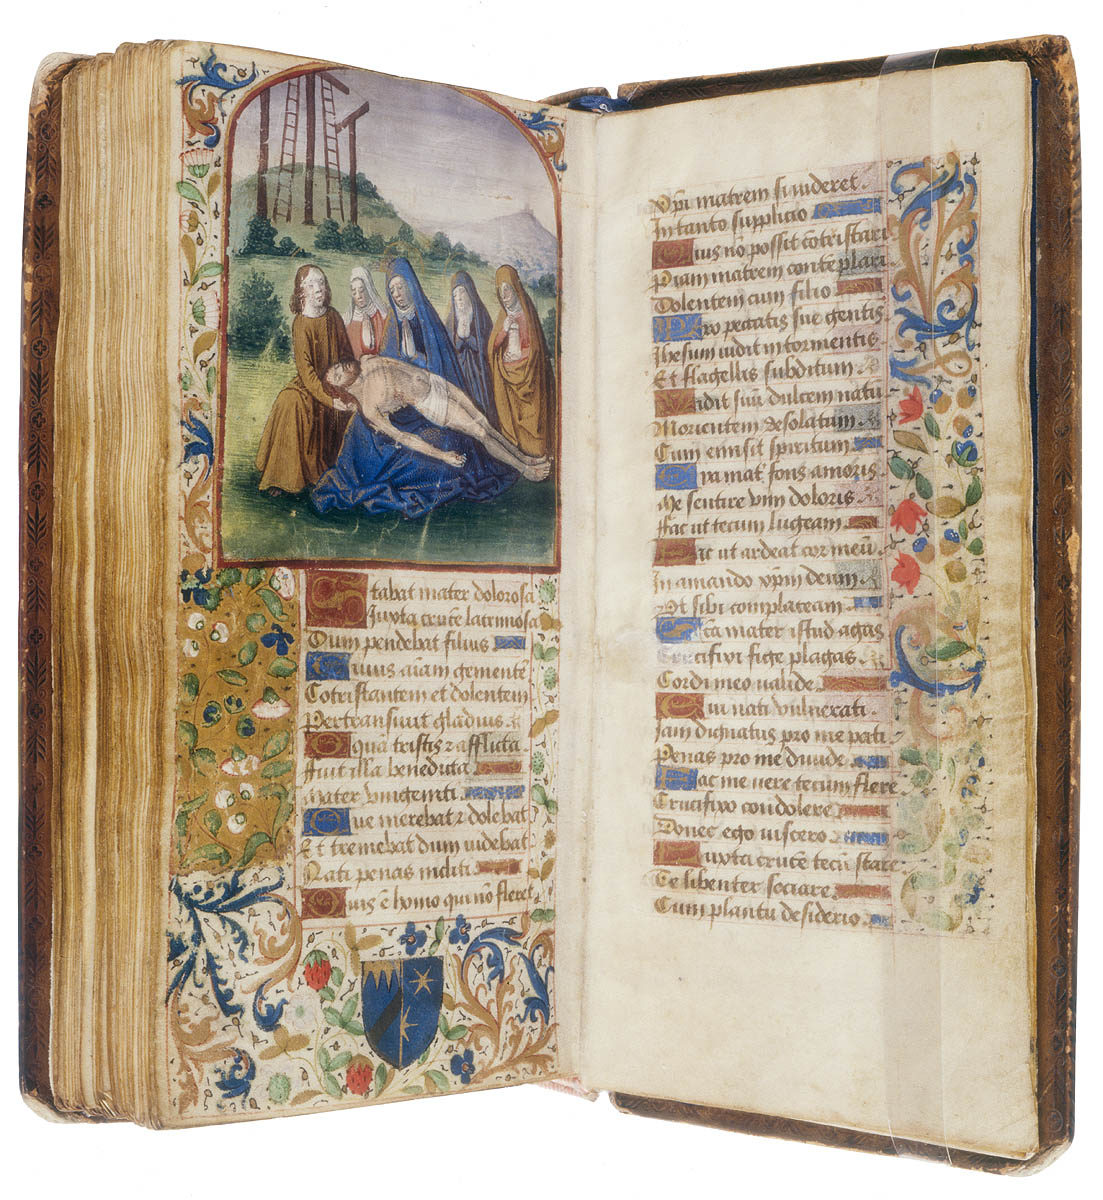 Stabat mater dolorosa
Juxta crucē lacrimosa
Dum pendebat filius
Cuius aīam gementē
Cōtristantem et dolentem
Pertransiuit gladius
O quā tristis ⁊ afflicta
ffuit illa benedicta
Mater vnigeniti
Que merebat ⁊ dolebat
Et tremebat dum uidebat
Nati penas incliti
Quis ē homo qui nō fleret
Xp̄i matrem si uideret
In tanto supplicio
Quis nō possit cōtristari
Piam matrem contēplari
Dolentem cum filio
Pro peccatis sue gentis
Ihesum uidit in tormentis
Et flagellis subditum
Vidit suū dulcem natū
Morientem desolatum
Cum emisit spiritum
Eya mat͛ fons amoris
Me sentire vim doloris
ffac ut tecum lugeam
ffac ut ardeat cor meū
In amando xp̄m deum
Vt sibi complaceam
Sc̄a mater istud agas
Crucifixi fige plagas
Cordi meo ualide
Tui nati vulnerati
Jam dignatus pro me pati
Penas pro me diuide
ffac me uere tecum flere
Crucifixo condolere
Donec ego uixero
Juxta crucē tecū stare
Te libenter sociare
Cum planctu desiderio